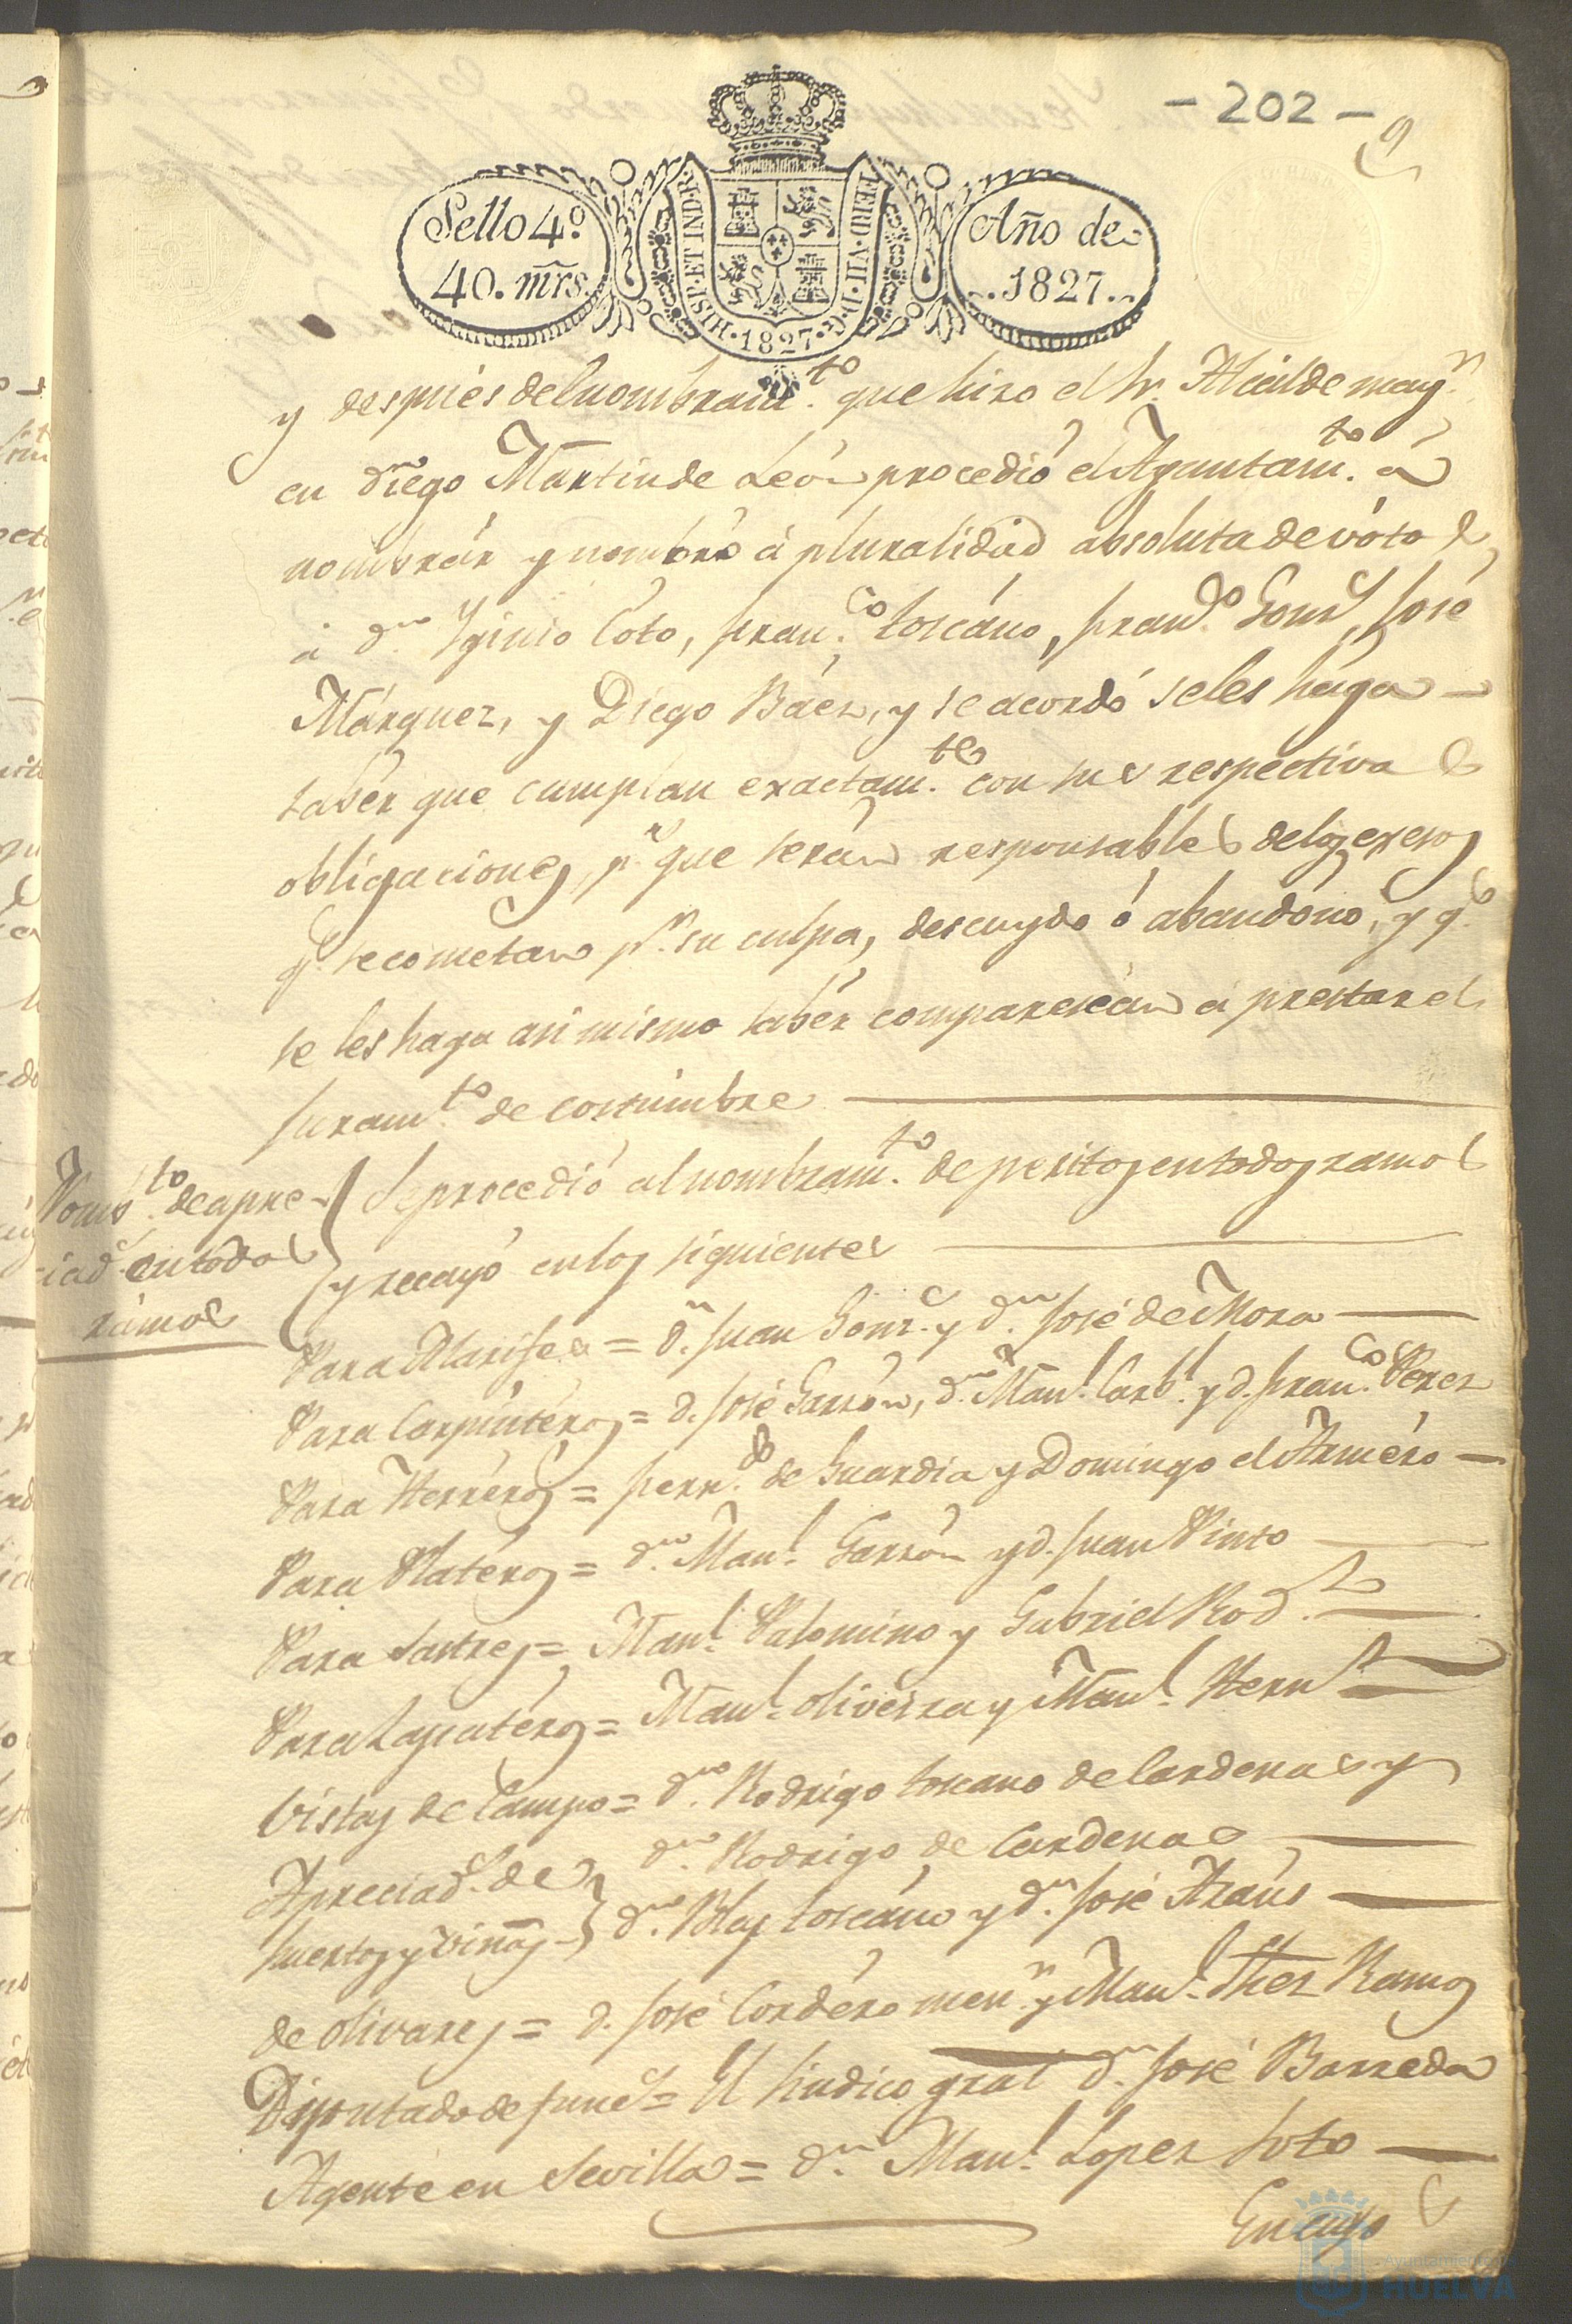 - 202 -
9
Sello 4.º
40. mrs.
HISP. ET IND. R.
FERD. VII. D. G.
· 1827 ·
Año de
.. 1827 ..
y despúes del nombram.to que hizo el Sr. Alcalde may.r
en Diego Martin de León procedió el Ayuntam.to á
nombrár y nombró á pluralidád absoluta de vótos
á d.n Yginio Cóto, Fran.co Toscáno, Fran.co Gonz José
Márquez, y Diego Báez, y se acordó se les hága
sabér que cumplan exactam.te con sus respectivas
obligaciones, p.r que serán responsables de los exesos
q.e se cometan p.r su culpa, descuydo ó abandóno, y q.e
se les haga asi mismo sabér comparescán á prestar el
juram.to de costúmbre
Nomb.to de apre-
ciad.s en todos
rámos
Se procedió al nombram.to de peritos en todos ramos
y recayó en los siguientes
Para Alarifes = d.n Juan Gonz.z y d.n José de Mora
Para Carpintéros = d. José Garzón, d.n Man.l Carb.l y d. Fran.co Perez
Para Herréros = Fern.do de Guardia y Domingo el Arméro
Para Platéros = d.n Man.l Garzón y d. Juan Pinto
Para Sastres = Man.l Palomino y Gabriel Rod.z
Para Zapatéros = Man.l Oliveira y Man.l Hern.z
Vistas de Campo = d.n Rodrigo Toscano de Cardenas y
d.n Rodrigo de Cardenas
Apreciad.s de
huertas y viñas } d.n Blas Toscáno y d.n José Araús
de olivares = d. José Cordéro men.r y Man.l Shez Ramos
Diputado de func.s = El Sindico gral d.n José Barreda
Agente en Sevilla = d.n Man.l Lopez Soto
En cuyo
Ayuntamiento de
HUELVA